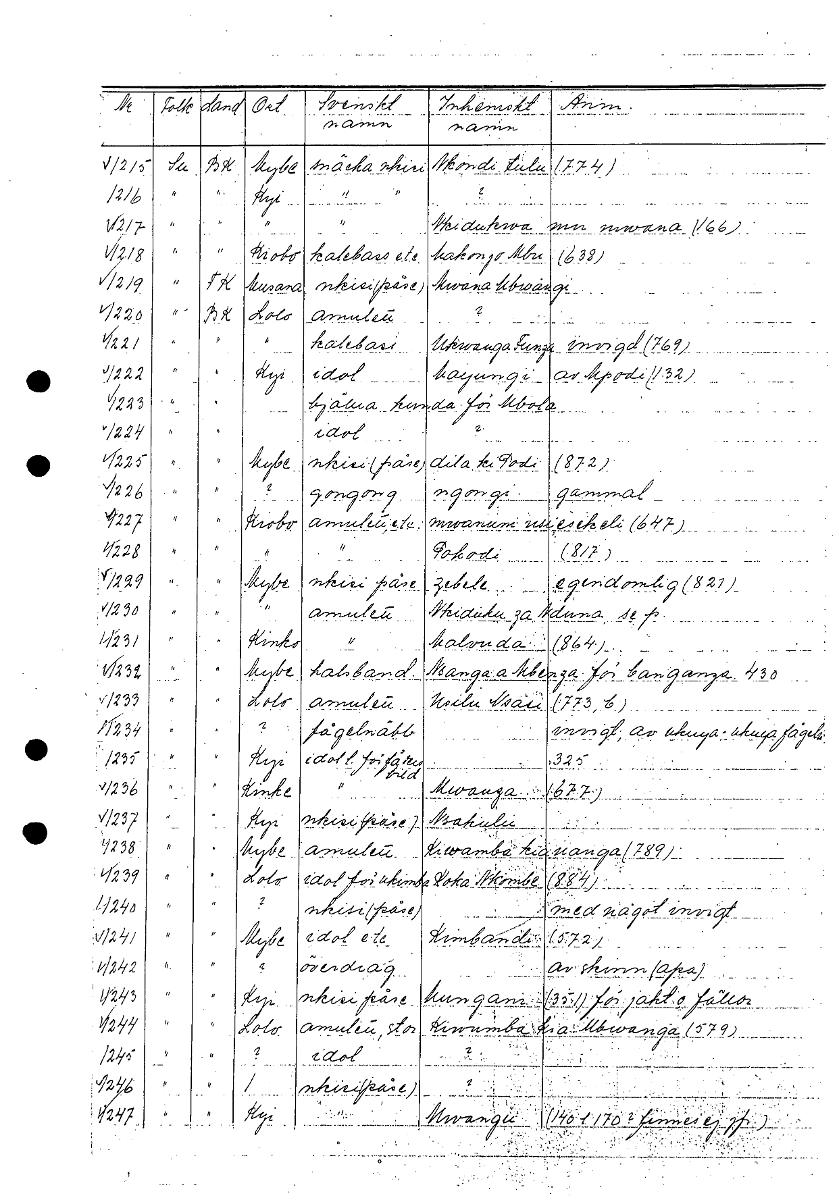 Nr Folk Land Ort Svenskt namn Inhemskt namn Anm.
√1215 Su BK Mybe snäcka nkisi Nkondi Lulu (774)
1216 " " Kyi " " ?
√1217 " " " " Nkidukwa mu mwana (166)
√1218 " " Krobo kalebass etc Makongo Mbu (638)
√1219 " FK Musana nkisi (påse) Mwana Mbwangi
√1220 " BK Lolo amulett ?
√1221 " " " kalebass Nkwanga Funza invigd (769)
√1222 " " Kyi idol Mayungi av Mpodi (132)
√1223 " " bjällra hunda för Mbola
√1224 " " idol ?
√1225 " " Mybe nkisi (påse) dila ki Podi (872)
√1226 " " ? gongong ngongi gammal
√1227 " " Krobo amulett, etc. (647)
√1228 " " " " Pohodi (817)
√1229 " " Mybe nkisi påse zebele egendomlig (821)
√1230 " " " amulett Nkiduku za Nduna se p.
√1231 " " Kinko " Malvuda (864)
√1232 " " Mybe halsband Nsanga a Mbenza för banganga 430
√1233 " " Lolo amulett Nsilu Nsasi (773, b)
√1234 " " ? fågelnäbb invigt, av ukuya-ukuya fågeln
1235 " " Kyi idol l. förfäders bild 325
√1236 " " Kinke " Mwanza (677)
√1237 " " Kyi nkisi (påse) Nsakulu
√1238 " " Mybe amulett Kiwamba kia nanga (789)
√1239 " " Lolo idol för nkimba Koka Nkombe (884)
√1240 " " ? nkisi (påse) med något invigt
√1241 " " Mybe idol etc Kimbandi (572)
√1242 " " ? överdrag av skinn (apa)
√1243 " " Kyi nkisi påse Mungani (351) för jakt o fällor
√1244 " " Lolo amulett, stor Kiwumba kia Mbwanga (579)
1245 " " ? idol ?
√1246 " " / nkisi (påse) ?
√1247 " " Kyi " Mwangu (140 l 170? finnes ej)